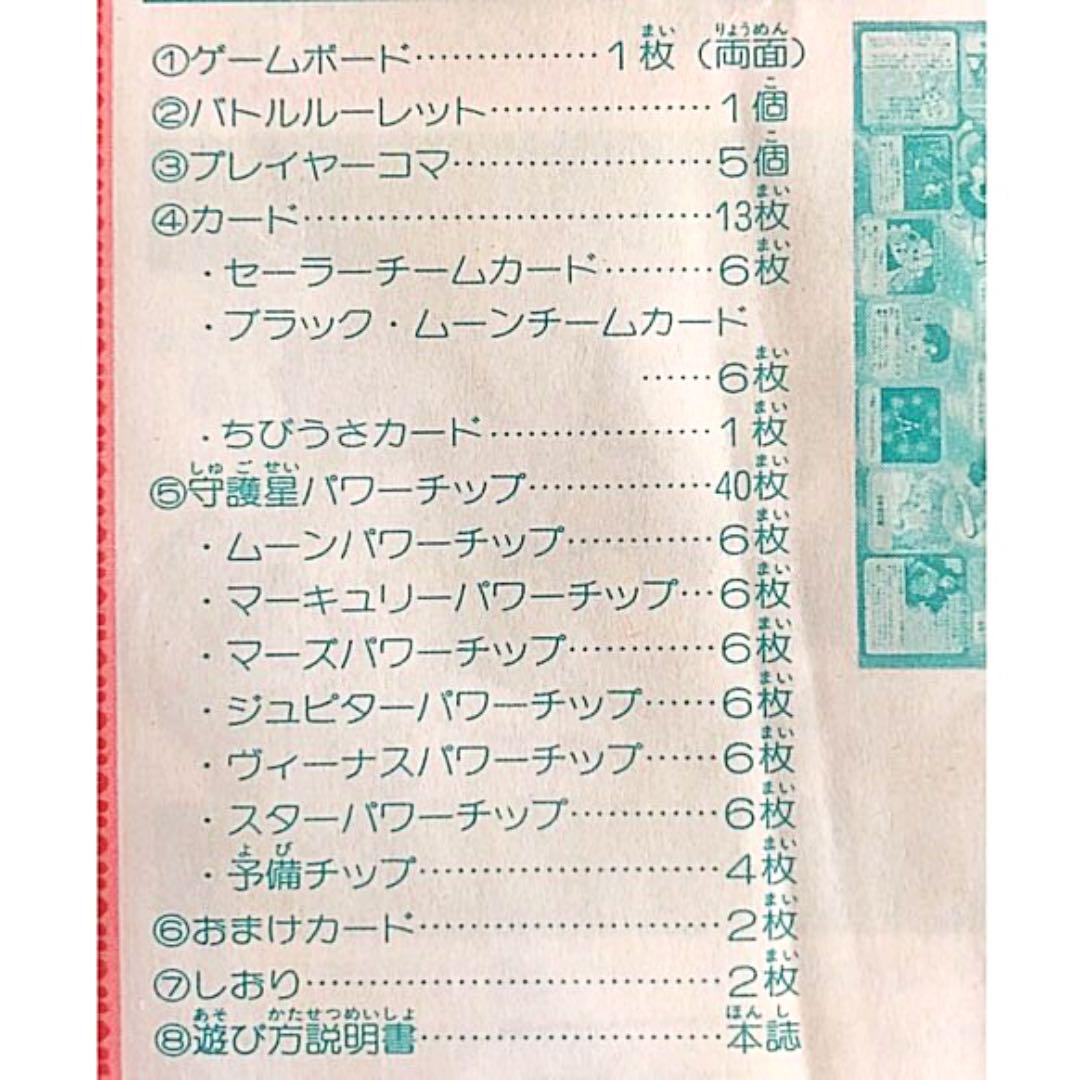 ①ゲームボード……………1枚（両面）
②バトルルーレット………………1個
③プレイヤーコマ…………………5個
④カード……………………………13枚
・セーラーチームカード………6枚
・ブラック・ムーンチームカード
……6枚
・ちびうさカード………………1枚
⑤守護星パワーチップ……………40枚
・ムーンパワーチップ…………6枚
・マーキュリーパワーチップ…6枚
・マーズパワーチップ…………6枚
・ジュピターパワーチップ……6枚
・ヴィーナスパワーチップ……6枚
・スターパワーチップ…………6枚
・予備チップ……………………4枚
⑥おまけカード……………………2枚
⑦しおり……………………………2枚
⑧遊び方説明書……………………本誌